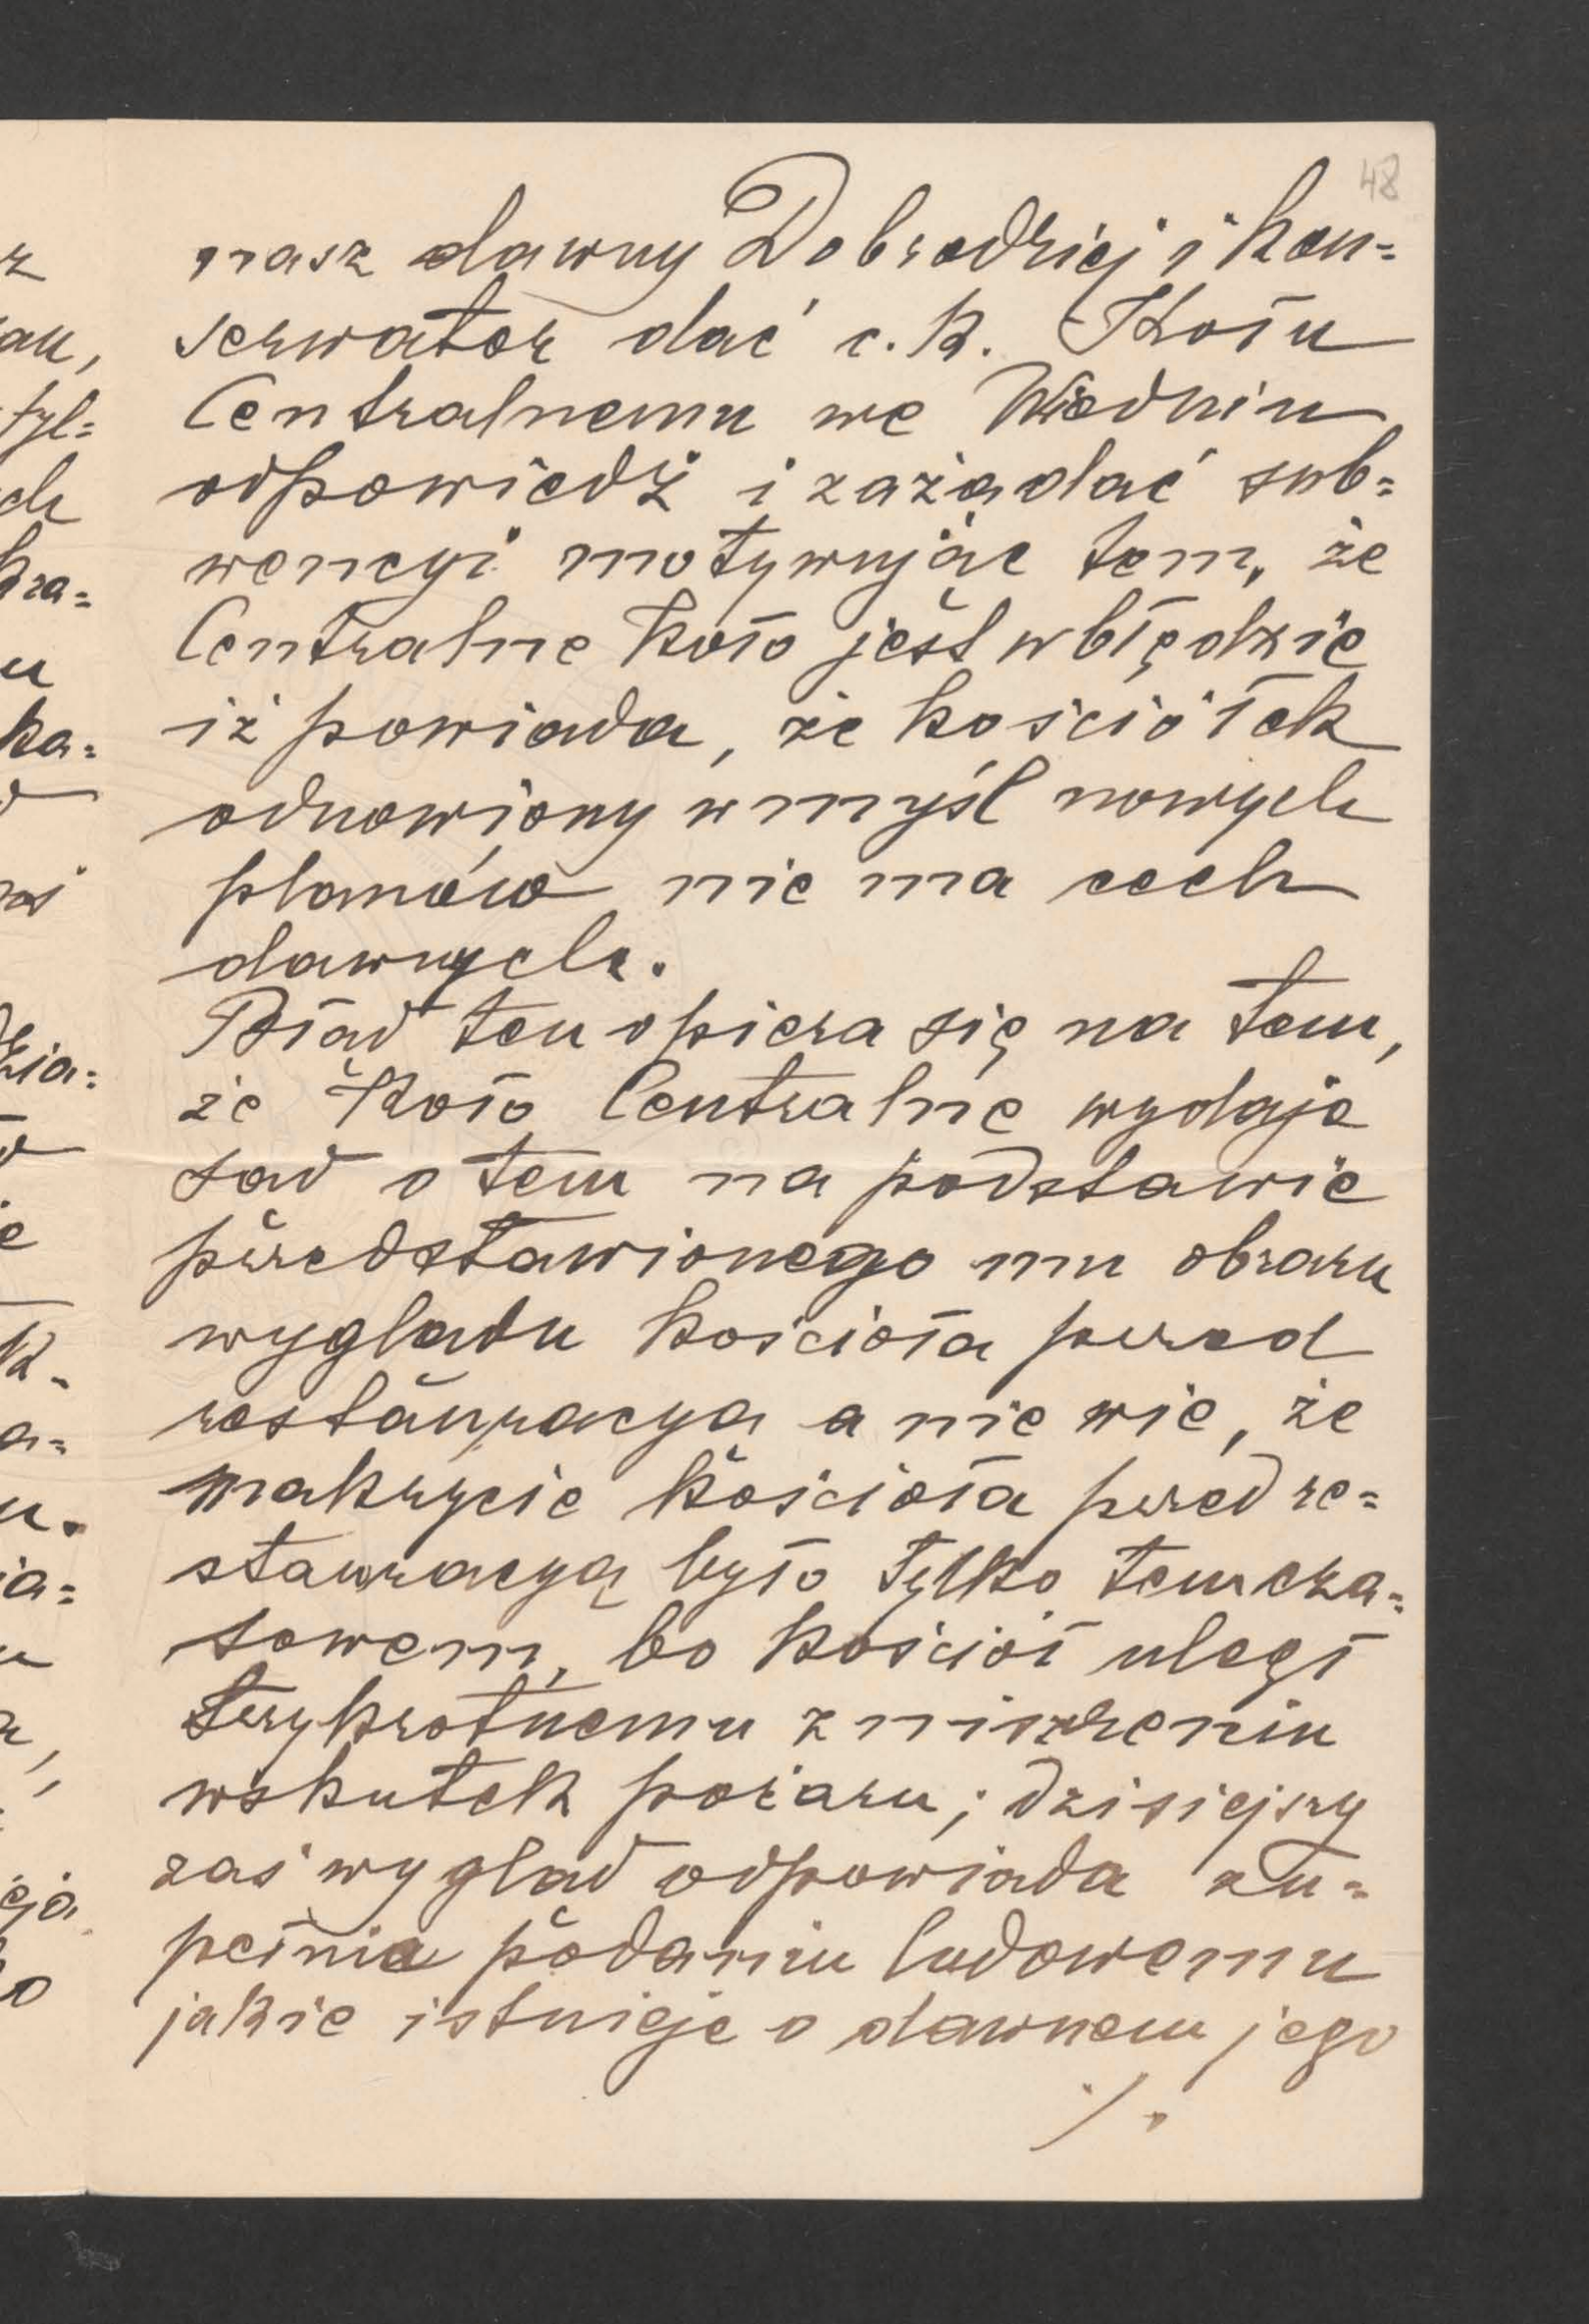 48
nasz dawny Dobrodziej i kon=
serwator dać c. k. Kołu
Centralnemu we Wiedniu
odpowiedź i zażądać sub=
wencyi motywując tem, że
Centralne Koło jest w błędzie
iż powiada, że kościółek
odnowiony w myśl nowych
planów nie ma cech
dawnych.
Błąd ten opiera się na tem,
że Koło Centralne wydaje
sąd o tem na podstawie
przedstawionego mu obrazu
wyglądu kościoła przed
restauracyą a nie wie, że
nakrycie kościoła przed re=
stauracyą było tylko temcza=
sowem, bo kościół uległ
trzykrotnemu zniszczeniu
wskutek pożaru; dzisiejszy
zaś wygląd odpowiada zu=
pełnie podaniu ludowemu
jakie istnieje o dawnem jego
./.